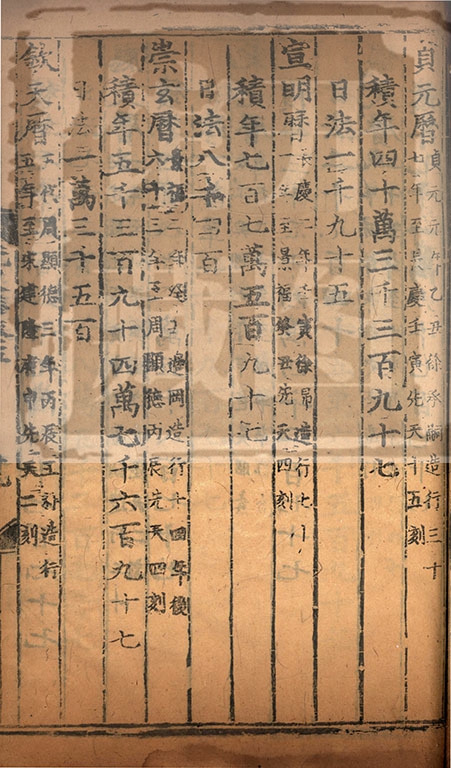 貞元曆貞元元年乙丑徐承嗣造行三十
七年至長慶壬寅先天十五刻
積年四十萬三千三百九十七
日法一千九十五
宣明曆長慶二年壬寅徐昂造行七十
一年至景福癸丑先天四刻
積年七百七萬五百九十七
日法八千四百
崇玄曆景福二年癸丑邊岡造行十四年後
六十三年至周顯德丙辰先天四刻
積年五千三百九十四萬七千六百九十七
日法一萬三千五百
欽天曆五代周顯德三年丙辰王朴造行
五年至宋建隆庚申先天二刻